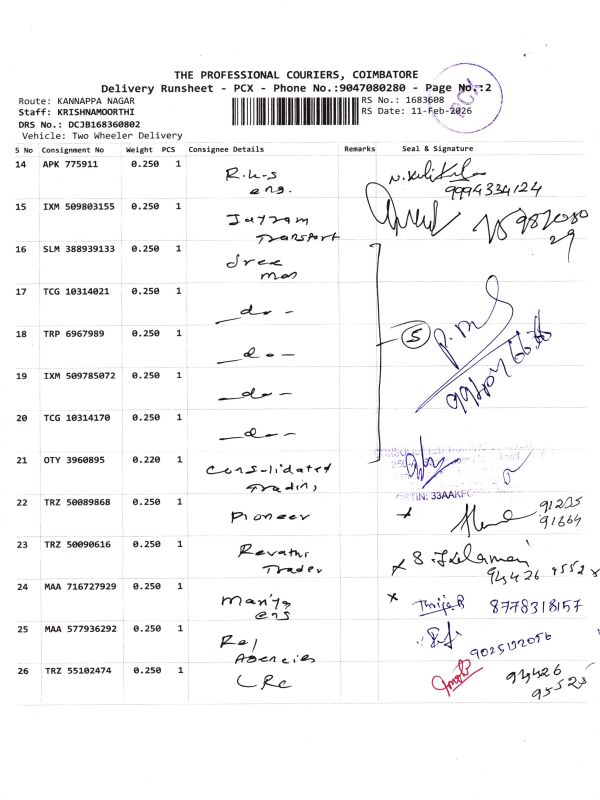 THE PROFESSIONAL COURIERS, COIMBATORE
Delivery Runsheet - PCX - Phone No.:9047080280 - Page No.:2
Route: KANNAPPA NAGAR
RS No.: 1683608
Staff: KRISHNAMOORTHI
RS Date: 11-Feb-2026
DRS No.: DCJB168360802
Vehicle: Two Wheeler Delivery
PCX
S No Consignment No Weight PCS Consignee Details Remarks Seal & Signature
14 APK 775911 0.250 1 R.K.S
eng.
9994334124
15 IXM 509803155 0.250 1 Jayram
Transport
16 SLM 388939133 0.250 1 Sree
mas
17 TCG 10314021 0.250 1 -do-
18 TRP 6967989 0.250 1 -do- 5
19 IXM 509785072 0.250 1 -do-
20 TCG 10314170 0.250 1 -do-
21 OTY 3960895 0.220 1 Consolidated
Trading
GSTIN: 33AAKFC
22 TRZ 50089868 0.250 1 Pioneer x
91235
91664
23 TRZ 50090616 0.250 1 Revathi
Trader
x
94426 95528
24 MAA 716727929 0.250 1
engs
x 8778318157
25 MAA 577936292 0.250 1 Raj
Agencies
9025192056
26 TRZ 55102474 0.250 1 LRC
94426
95525